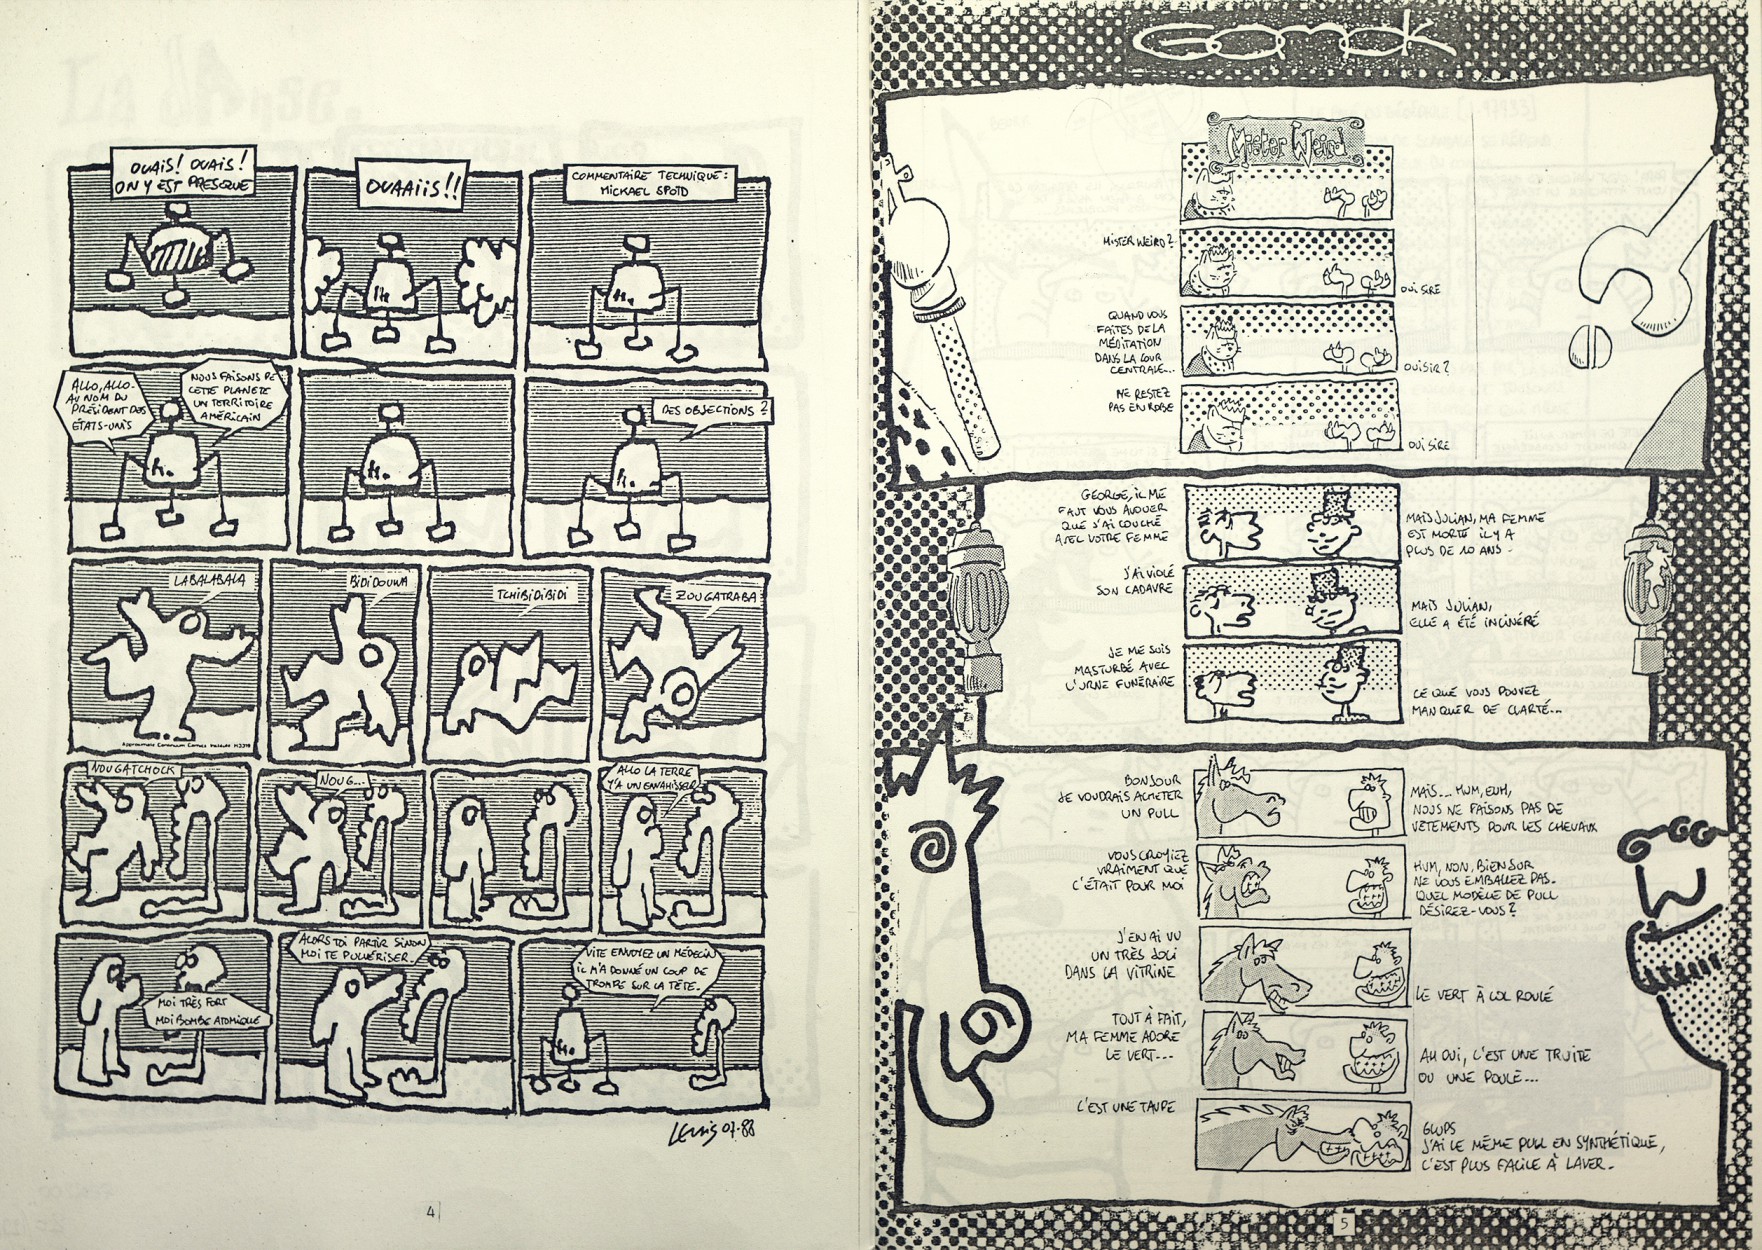 OUAIS! OUAIS!
ON Y EST PRESQUE
OUAAIIS!!
COMMENTAIRE TECHNIQUE:
MICKAEL SPOTD
ALLO, ALLO.
AU NOM DU
PRÉSIDENT DES
ÉTATS-UNIS
NOUS FAISONS DE
CETTE PLANETE
UN TERRITOIRE
AMÉRICAIN
DES OBJECTIONS?
LABALABALA
BIDIDOUWA
TCHIBIDIBIDI
ZOUGATRABA
NOUGATCHOCK
NOUG...
ALLO LA TERRE
Y'A UN ENVAHISSEUR
MOI TRÈS FORT
MOI BOMBE ATOMIQUE
ALORS TOI PARTIR SINON
MOI TE PULVÉRISER.
VITE ENVOYEZ UN MÉDECIN
IL M'A DONNÉ UN COUP DE
TROMPE SUR LA TÊTE.
LEWIS 07-88
4
GOMOK
Mister Weird
MISTER WEIRD?
OUI SIRE
QUAND VOUS
FAITES DE LA
MÉDITATION
DANS LA COUR
CENTRALE...
OUI SIR?
NE RESTEZ
PAS EN ROBE
OUI SIRE
GEORGE, IL ME
FAUT VOUS AVOUER
QUE J'AI COUCHÉ
AVEC VOTRE FEMME
MAIS JULIAN, MA FEMME
EST MORTE IL Y A
PLUS DE 10 ANS.
J'AI VIOLÉ
SON CADAVRE
MAIS JULIAN,
ELLE A ÉTÉ INCINÉRÉ
JE ME SUIS
MASTURBÉ AVEC
L'URNE FUNÉRAIRE
CE QUE VOUS POUVEZ
MANQUER DE CLARTÉ...
BONJOUR
JE VOUDRAIS ACHETER
UN PULL
MAIS... HUM, EUH,
NOUS NE FAISONS PAS DE
VETEMENTS POUR LES CHEVAUX
VOUS CROYIEZ
VRAIMENT QUE
C'ÉTAIT POUR MOI
HUM, NON, BIEN SUR
NE VOUS EMBALLEZ PAS.
QUEL MODÈLE DE PULL
DÉSIREZ-VOUS?
J'EN AI VU
UN TRÈS JOLI
DANS LA VITRINE
LE VERT À COL ROULÉ
TOUT À FAIT,
MA FEMME ADORE
LE VERT...
AH OUI, C'EST UNE TRUITE
OU UNE POULE...
C'EST UNE TAUPE
GLUPS
J'AI LE MÊME PULL EN SYNTHÉTIQUE,
C'EST PLUS FACILE À LAVER.
5